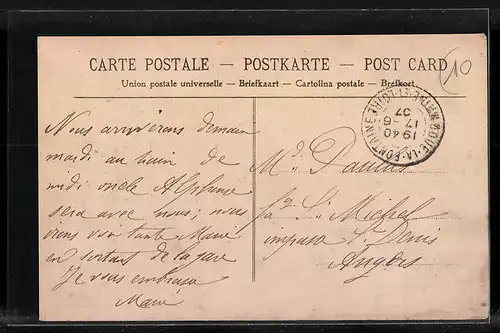 CARTE POSTALE — POSTKARTE — POST CARD
Union postale universelle — Briefkaart — Cartolina postale — Brefkort
10
Nous arriverons demain
mardi au train de
midi oncle Alphonse
sera avec nous; nous
irons voir tante Marie
en sortant de la gare
Je vous embrasse
Marie
DOUÉ-LA-FONTAINE
MAINE-ET-LOIRE
1940
17-6
37
Md.
Fg St Michel
impasse St Denis
Angers